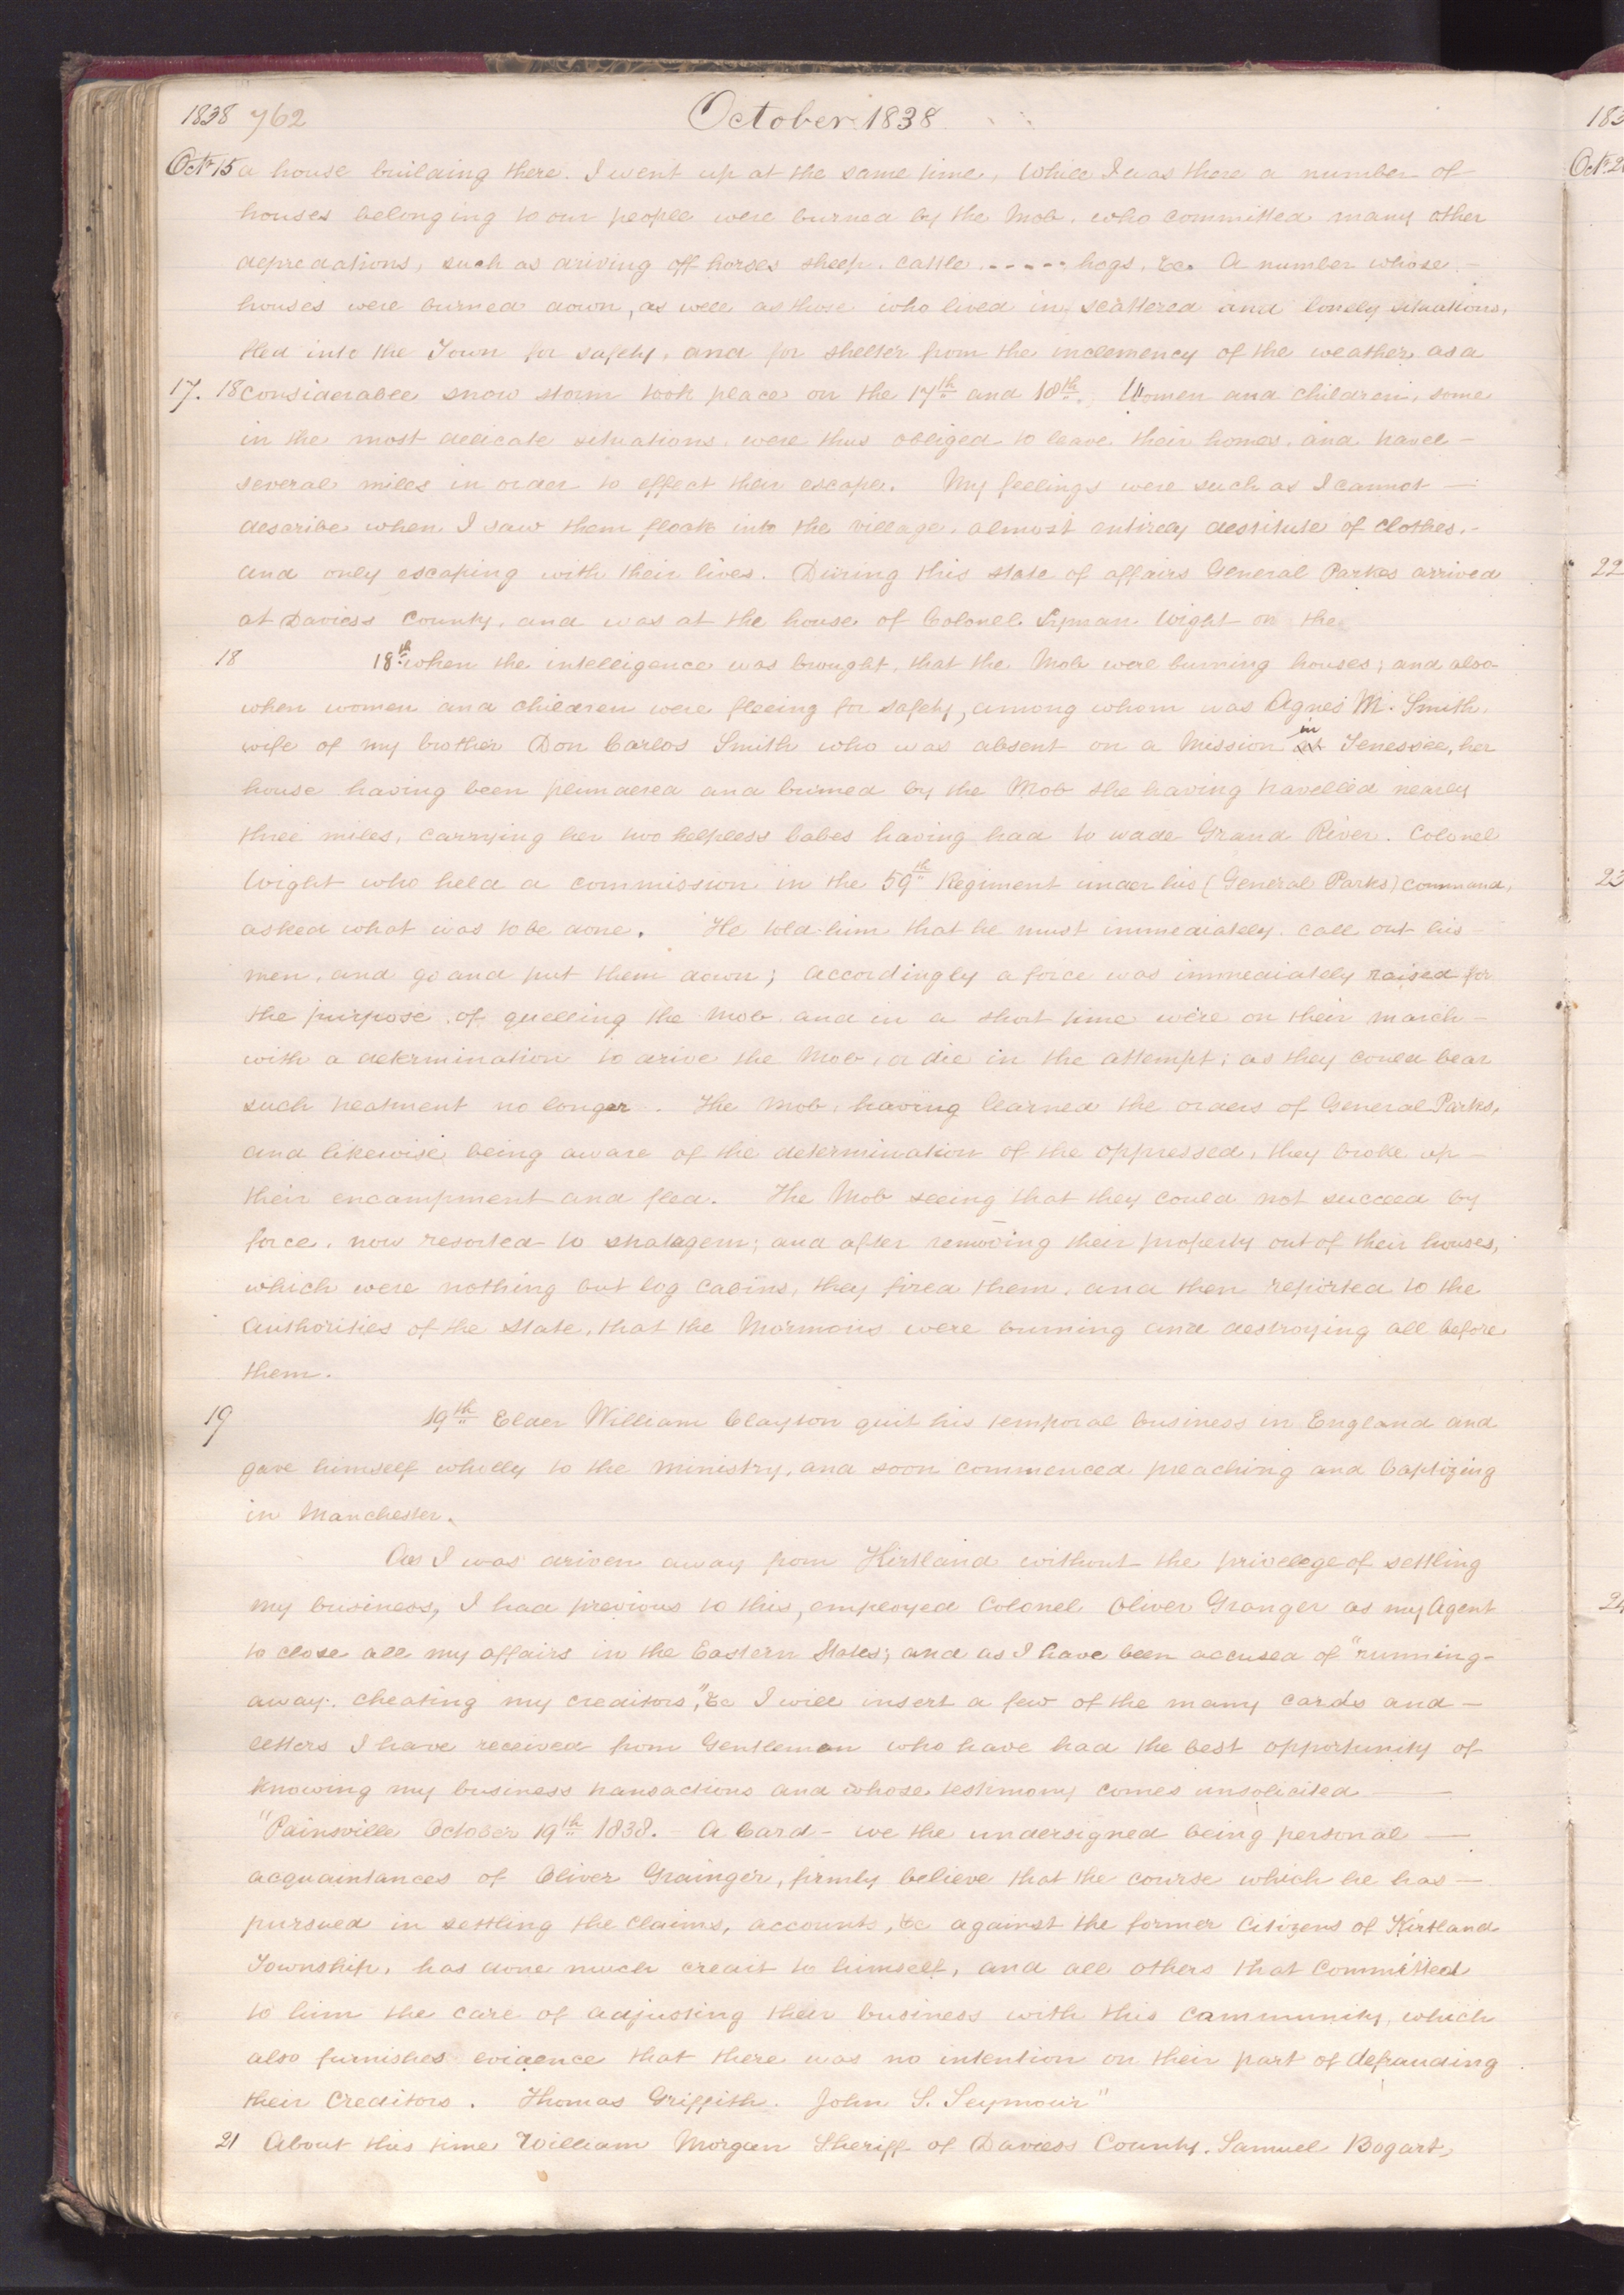 1838 762 October 1838
Octr 15 a house building there. I went up at the same time, While I was there a number of
houses belonging to our people were burned by the Mob, who committed many other
depredations, such as driving off horses sheep, cattle ----- hogs, &c. A number whose
houses were burned down, as well as those who lived in scattered and lonely situations,
fled into the Town for safety, and for shelter from the inclemency of the weather, as a
17. 18 considerable snow storm took place on the 17th and 18th. Women and children, some
in the most delicate situations, were thus obliged to leave their homes, and travel
several miles in order to effect their escape. My feelings were such as I cannot
describe when I saw them flock into the village, almost entirely destitute of clothes,
and only escaping with their lives. During this state of affairs General Parks arrived
at Daviess County, and was at the house of Colonel Lyman Wight on the
18 18th when the intelligence was brought, that the Mob were burning houses; and also
when women and children were fleeing for safety, among whom was Agnes M. Smith,
wife of my brother Don Carlos Smith who was absent on a Mission in Tenessee, her
house having been plundered and burned by the Mob she having travelled nearly
three miles, carrying her two helpless babes having had to wade Grand River. Colonel
Wight who held a commission in the 59th Regiment under his (General Parks) command,
asked what was to be done. He told him that he must immediately call out his
men, and go and put them down; accordingly a force was immediately raised for
the purpose of quelling the Mob and in a short time were on their march
with a determination to drive the Mob, or die in the attempt; as they could bear
such treatment no longer. The Mob, having learned the orders of General Parks,
and likewise being aware of the determination of the oppressed, they broke up
their encampment and fled. The Mob seeing that they could not succeed by
force, now resorted to stratagem; and after removing their property out of their houses,
which were nothing but log cabins, they fired them, and then reported to the
Authorities of the State, that the Mormons were burning and destroying all before
them.
19 19th Elder William Clayton quit his temporal business in England and
gave himself wholly to the ministry, and soon commenced preaching and baptizing
in Manchester.
As I was driven away from Kirtland without the privelege of settling
my business, I had previous to this, employed Colonel Oliver Granger as my Agent
to close all my affairs in the Eastern States; and as I have been accused of "running-
away, cheating my creditors", &c I will insert a few of the many cards and
letters I have received from Gentleman who have had the best opportunity of
knowing my business transactions and whose testimony comes unsolicited
"Painsville October 19th 1838. A Card - we the undersigned being personal
acquaintances of Oliver Grainger, firmly believe that the course which he has
pursued in settling the claims, accounts, &c against the former Citizens of Kirtland
Township, has done much credit to himself, and all others that Committed
to him the care of adjusting their business with this community, which
also furnishes evidence that there was no intention on their part of defrauding
their Creditors. Thomas Griffith. John S. Seymour"
21 About this time William Morgan Sheriff of Daviess County, Samuel Bogart,
183
Octr 2
22
23
24